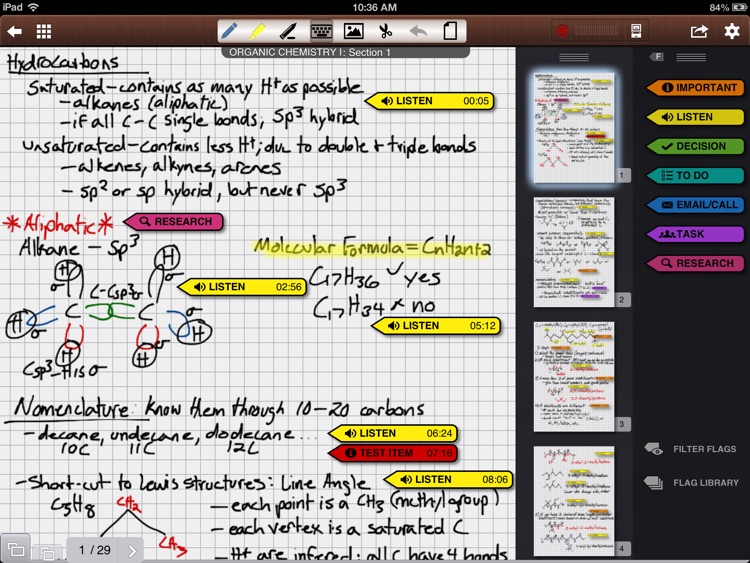 iPad
10:36 AM
84%
ORGANIC CHEMISTRY I: Section 1
Hydrocarbons
Saturated-contains as many H+ as possible
LISTEN 00:05
-alkanes (aliphatic)
-if all C-C single bonds, Sp³ hybrid
unsaturated-contains less H+, due to double & triple bonds
-alkenes, alkynes, arenes
-sp² or sp hybrid, but never sp³
*Aliphatic*
RESEARCH
Alkane - sp³
Molecular Formula = CnH2n+2
H H
σ σ
LISTEN 02:56
C17H36 ✓ yes
C C-Csp³σ C
C17H34 x no
H σ H
LISTEN 05:12
H H σ
Csp³-H is σ
Nomenclature: Know them through 10-20 carbons
-decane, undecane, dodecane...
LISTEN 06:24
10C 11C 12C
TEST ITEM 07:16
-Short-cut to Lewis structures: Line Angle
LISTEN 08:06
C3H8 CH2
-each point is a CH3 (methyl group)
-each vertex is a saturated C
CH3
-H+ are infered: all C have 4 bonds
1 / 29
1
2
3
4
F
IMPORTANT
LISTEN
DECISION
TO DO
EMAIL/CALL
TASK
RESEARCH
FILTER FLAGS
FLAG LIBRARY